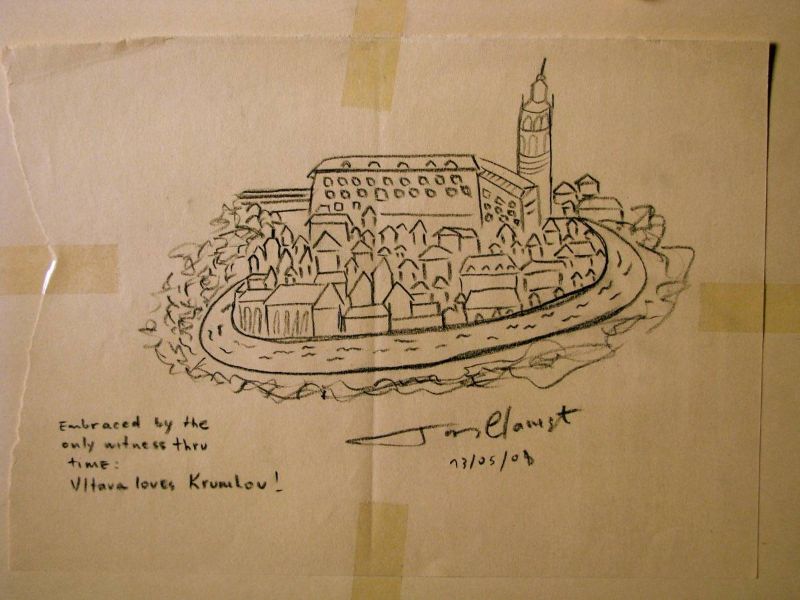 Embraced by the
only witness thru
time:
Vltava loves Krumlov!
13/05/08